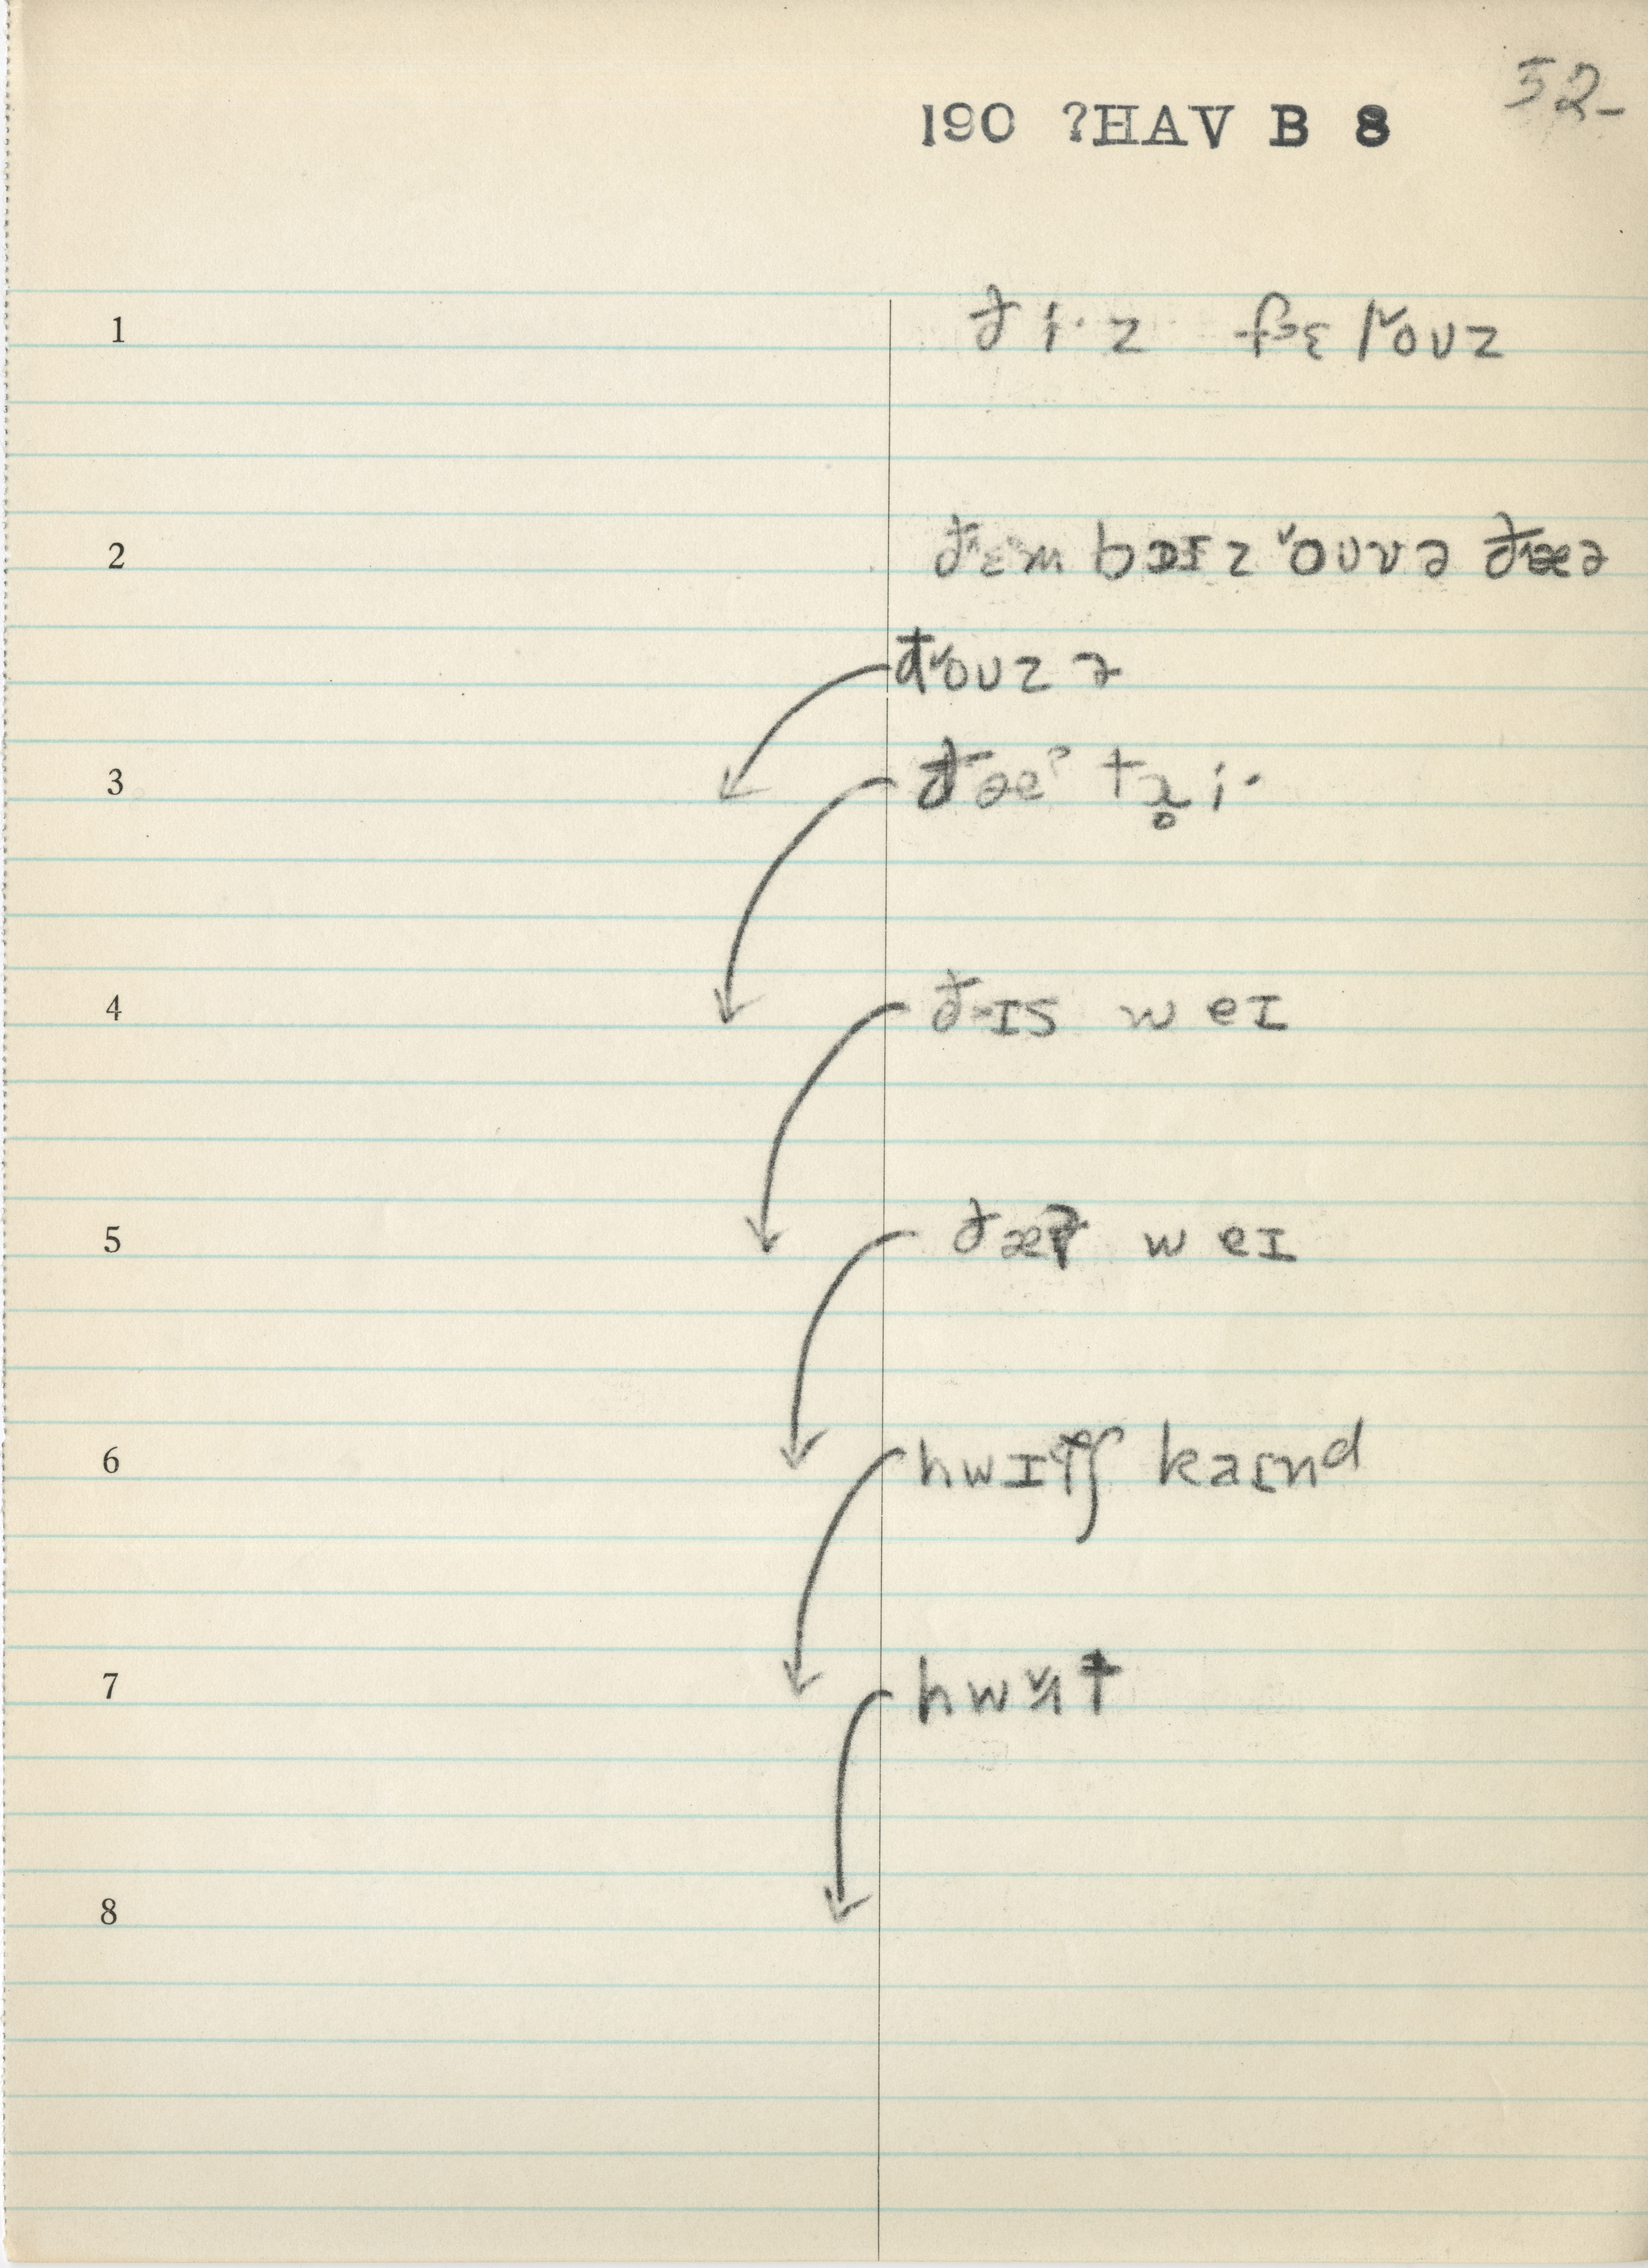 52-
190 ?HAV B 8
1 ði·z fɛloᴜz
2 ðɛm bɒɪz oᴜvə ðæə
ðoᴜzə
3 ðæˀ tɹ̥i·
4 ðɪs weɪ
5 ðæt weɪ
6 hwɪtʃ kaɪnd
7 hwɪt
8